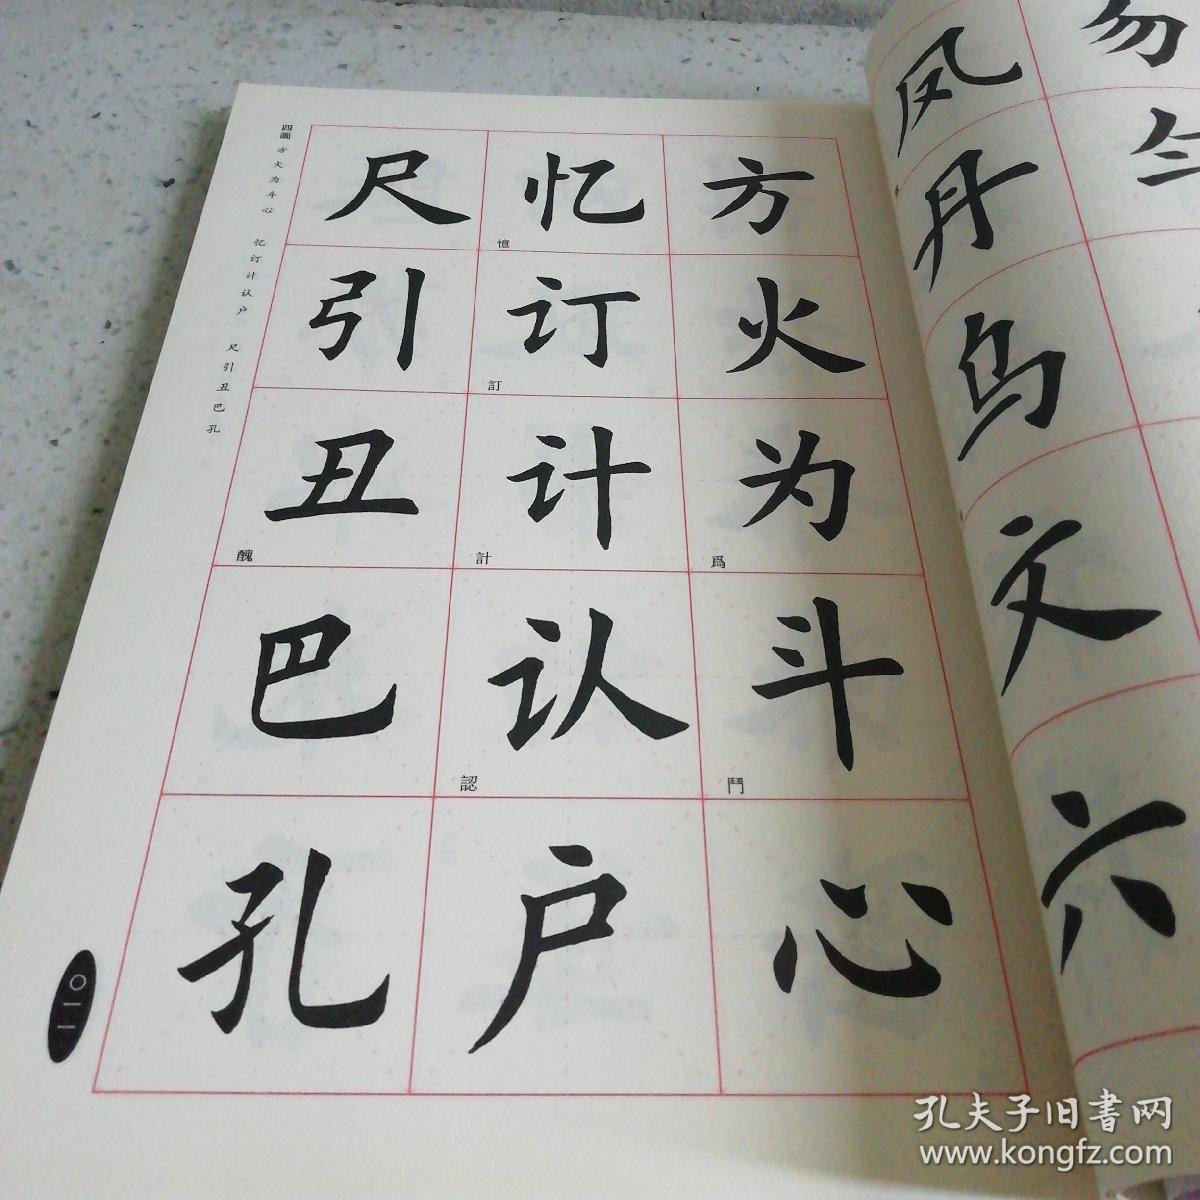 四画 方火为斗心 忆订计认户 尺引丑巴孔
方火为斗心
爲
鬥
忆订计认户
憶
訂
計
認
尺引丑巴孔
醜
〇一一
勿
风丹乌文六
孔夫子旧書网
www.kongfz.com